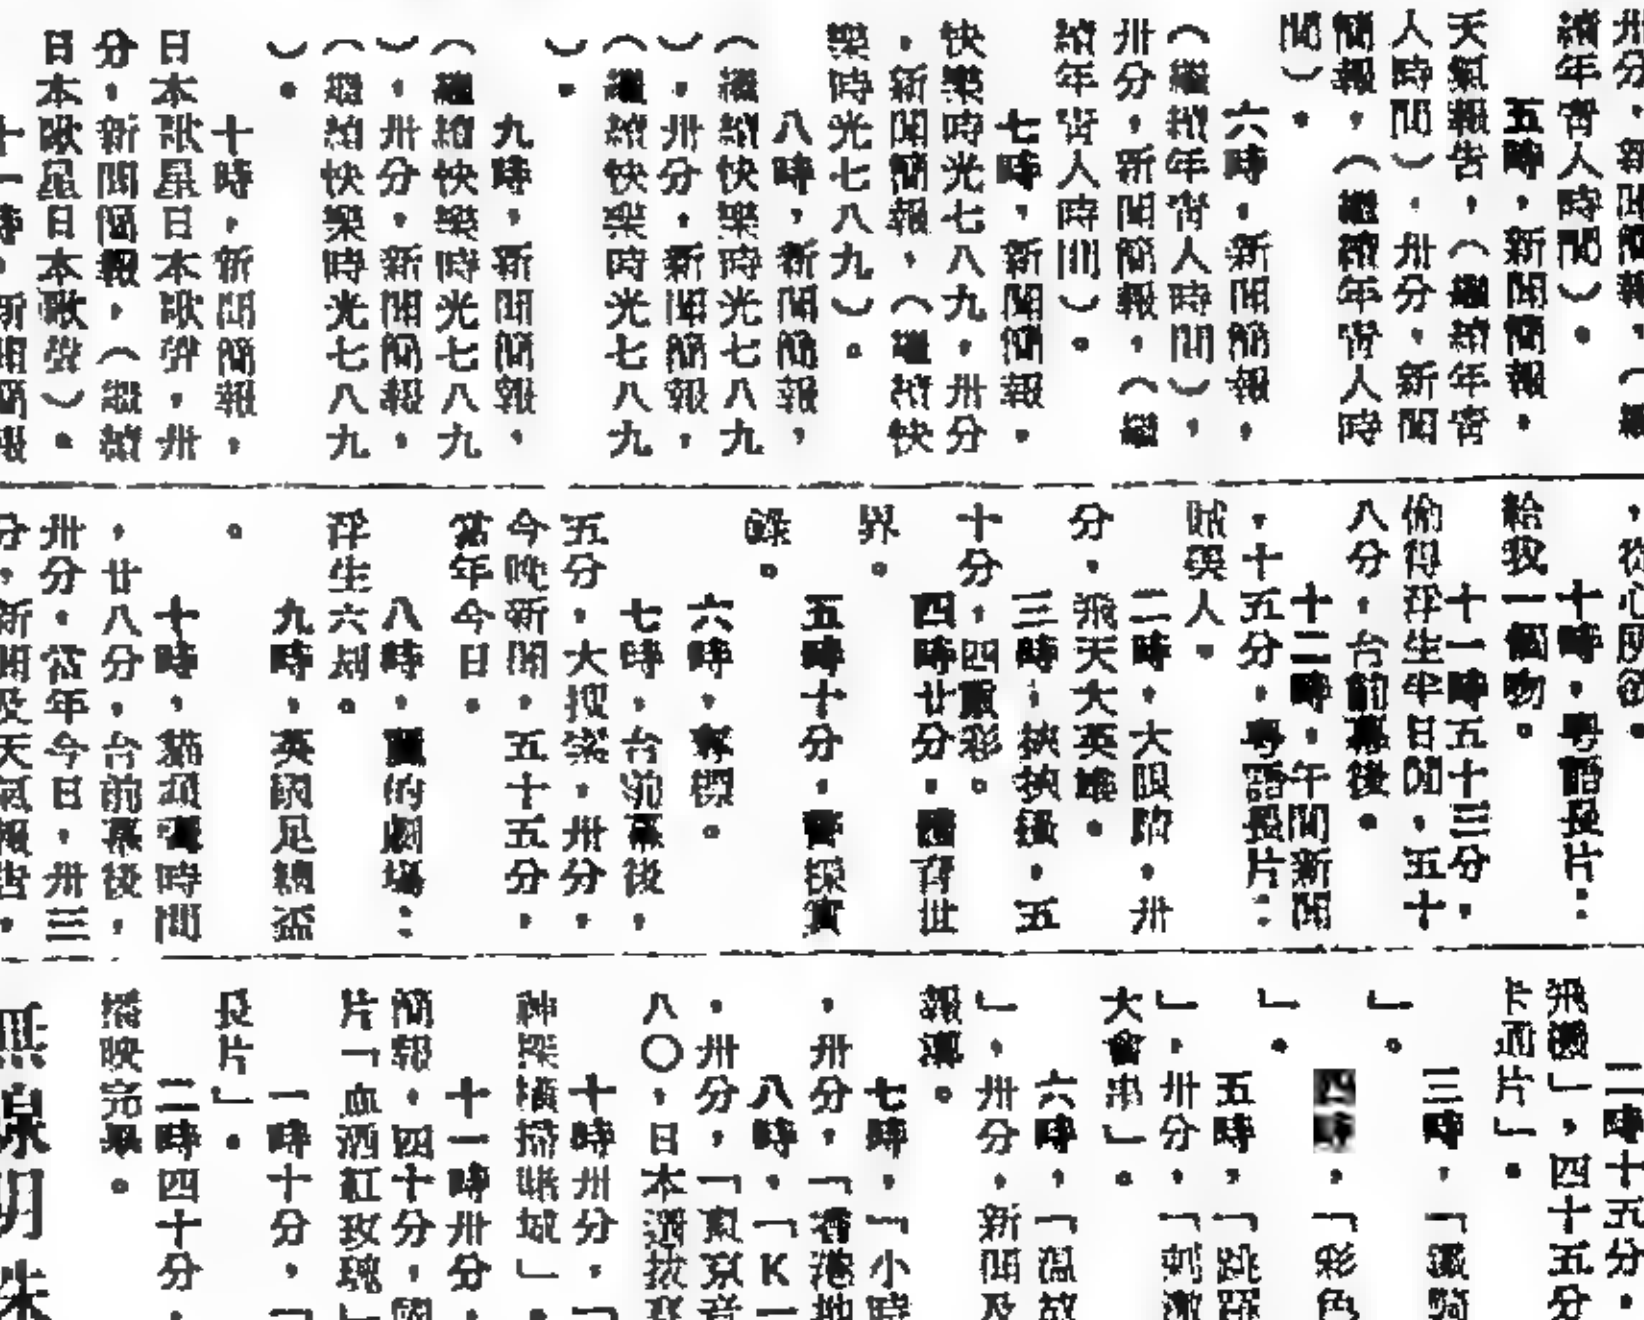 卅分，新聞簡報，（繼
續年青人時間）。
五時，新聞簡報，
天氣報告，（繼續年青
人時間），卅分，新聞
簡報，（繼續年青人時
間）。
六時，新聞簡報，
（繼續年青人時間），
卅分，新聞簡報，（繼
續年青人時間）。
七時，新聞簡報，
快樂時光七八九，卅分
，新聞簡報，（繼續快
樂時光七八九）。
八時，新聞簡報，
（繼續快樂時光七八九
），卅分，新聞簡報，
（繼續快樂時光七八九
）。
九時，新聞簡報，
（繼續快樂時光七八九
），卅分，新聞簡報，
（繼續快樂時光七八九
）。
十時，新聞簡報，
日本歌星日本歌聲，卅
分，新聞簡報，（繼續
日本歌星日本歌聲）。
十一時，新聞簡報
，從心所欲。
十時，粵語長片：
給我一個吻。
十一時五十三分，
偷得浮生半日閒，五十
八分，台前幕後。
十二時，午間新聞
，十五分，粵語長片：
賊美人。
二時，大限階，卅
分，飛天大英雄。
三時，扶扶鎮，五
十分，四重彩。
四時廿分，體育世
界。
五時十分，警探實
錄。
六時，奪標。
七時，台前幕後，
五分，大搜索，卅分，
今晚新聞，五十五分，
當年今日。
八時，的劇場：
浮生六刦。
九時，英國足總盃
。
十時，貓頭鷹時間
，廿八分，台前幕後，
卅分，當年今日，卅三
分，新聞及天氣報告，
二時十五分，
飛機」，四十五分
卡通片」。
三時，「鐵騎
」。
四時，「彩色
」。
五時，「跳躍
」，卅分，「刺激
大會串」。
六時，「溫故
」，卅分，新聞及
報導。
七時，「小時
，卅分，「香港地
八時，「K一
，卅分，「東京音
八〇，日本選拔賽
十時卅分，「
神探橫掃賭城」。
十一時卅分，
簡報，四十分，國
片「血洒紅玫瑰」
一時十分，「
長片」。
二時四十分，
播映完畢。
無線明珠